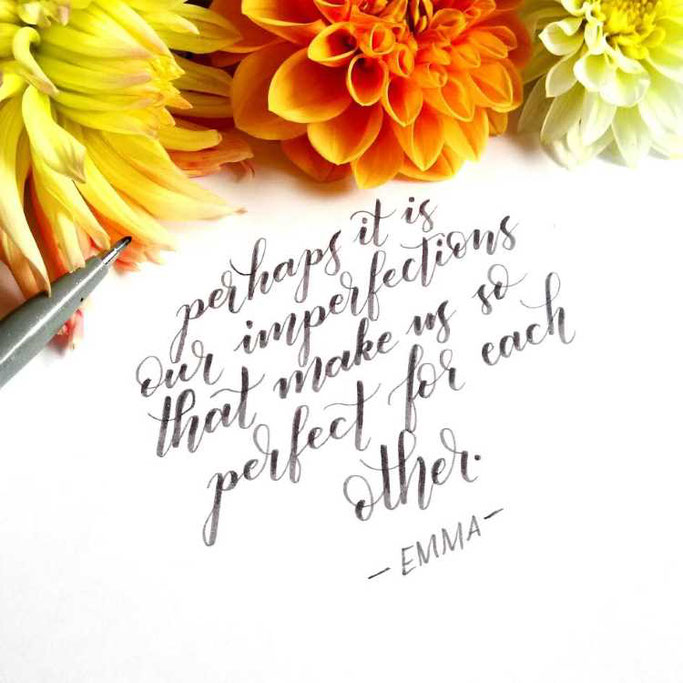 perhaps it is
our imperfections
that make us so
perfect for each
other.
-EMMA-